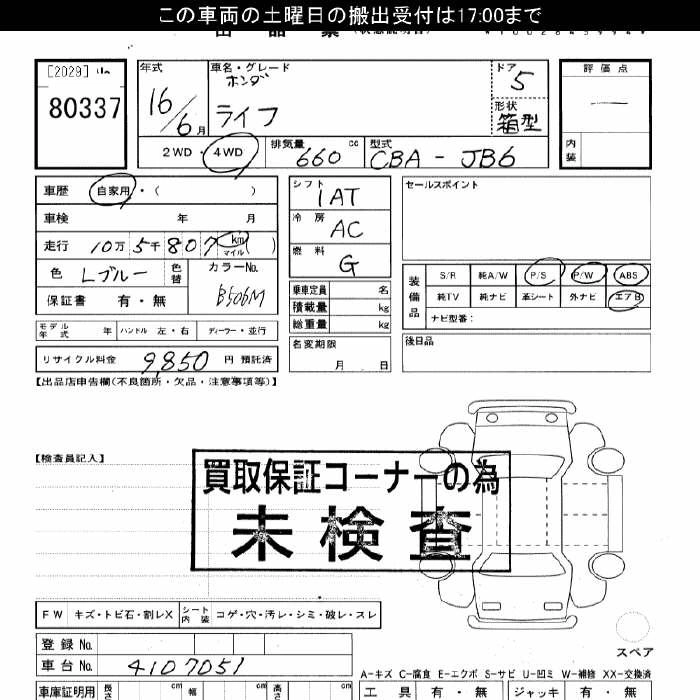 この車両の土曜日の搬出受付は17:00まで
[2029] 山
80337
年式
16/6月
車名・グレード
ホンダ
ライフ
ドア
5
形状
箱型
評価点
内装
2WD・4WD
排気量
660 cc
型式
CBA - JB6
車歴 自家用・( )
車検 年 月
走行 10万5千807 km マイル ( )
色 Lブルー 色替
カラーNo.
B506M
保証書 有・無
モデル年式 年 ハンドル 左・右 ディーラー・並行
リサイクル料金 9,850 円 預託済
シフト
1AT
冷房
AC
燃料
G
乗車定員 名
積載量 kg
総重量 kg
名変期限
月 日
セールスポイント
装備品
S/R 純A/W P/S P/W ABS
純TV 純ナビ 革シート 外ナビ エアB
ナビ型番:
後日品
【出品店申告欄(不良箇所・欠品・注意事項等)】
【検査員記入】
買取保証コーナーの為
未検査
FW キズ・トビ石・割レX シート内装 コゲ・穴・汚レ・シミ・破レ・スレ
登録No.
車台No. 4107051
スペア
A-キズ C-腐食 E-エクボ S-サビ U-凹ミ W-補修 XX-交換済
車庫証明用 長さ cm 幅 cm 高さ cm
工具 有・無 ジャッキ 有・無